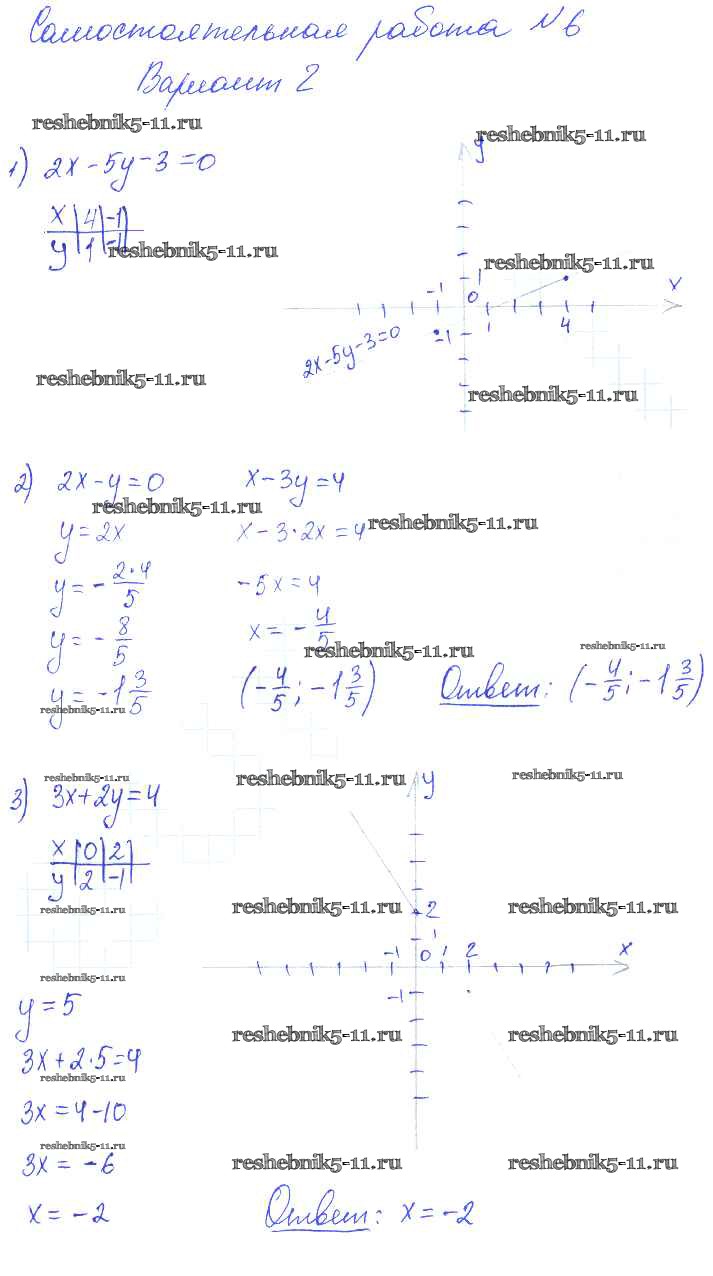 Самостоятельная работа №6
Вариант 2
reshebnik5-11.ru
reshebnik5-11.ru
1) 2x-5y-3=0
y
x | 4 | -1
y | 1 | -1
reshebnik5-11.ru
reshebnik5-11.ru
-1 1 0 x
2x-5y-3=0 -1 1 4
reshebnik5-11.ru
reshebnik5-11.ru
2) 2x-y=0 x-3y=4
reshebnik5-11.ru
reshebnik5-11.ru
y=2x x-3·2x=4
y=-\frac{2·4}{5} -5x=4
y=-\frac{8}{5} x=-\frac{4}{5}
reshebnik5-11.ru
reshebnik5-11.ru
y=-1\frac{3}{5} (-\frac{4}{5};-1\frac{3}{5}) Ответ: (-\frac{4}{5};-1\frac{3}{5})
reshebnik5-11.ru
reshebnik5-11.ru
reshebnik5-11.ru
reshebnik5-11.ru
3) 3x+2y=4 y
x | 0 | 2
y | 2 | -1
reshebnik5-11.ru
reshebnik5-11.ru
reshebnik5-11.ru
2
1
-1 0 1 2 x
reshebnik5-11.ru
-1
y=5
reshebnik5-11.ru
reshebnik5-11.ru
3x+2·5=4
reshebnik5-11.ru
3x=4-10
reshebnik5-11.ru
3x=-6
reshebnik5-11.ru
reshebnik5-11.ru
x=-2 Ответ: x=-2